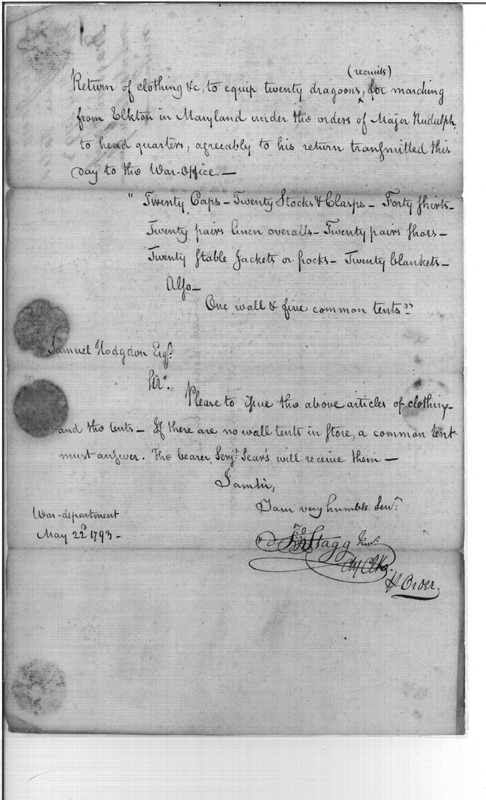 (recruits)
Return of clothing &c, to equip twenty dragoons, for marching
from Elkton in Maryland under the orders of Major Rudulph,
to head quarters, agreeably to his return transmitted this
day to the War-Office.—
"Twenty Caps – Twenty Stocks & Clasps – Forty Shirts –
Twenty pairs linen overalls – Twenty pairs shoes –
Twenty Stable Jackets or frocks – Twenty blankets –
Also –
One wall & five common tents"
Samuel Hodgdon Esqr.
Sir.
Please to issue the above articles of clothing –
and the tents – If there are no wall tents in store, a common tent
must answer. The bearer, Serjt. Sears will receive them –
I am sir,
I am very humble Servt.
War-department
May 22d 1793 –
Jno Stagg Junr.
Ch Clk.